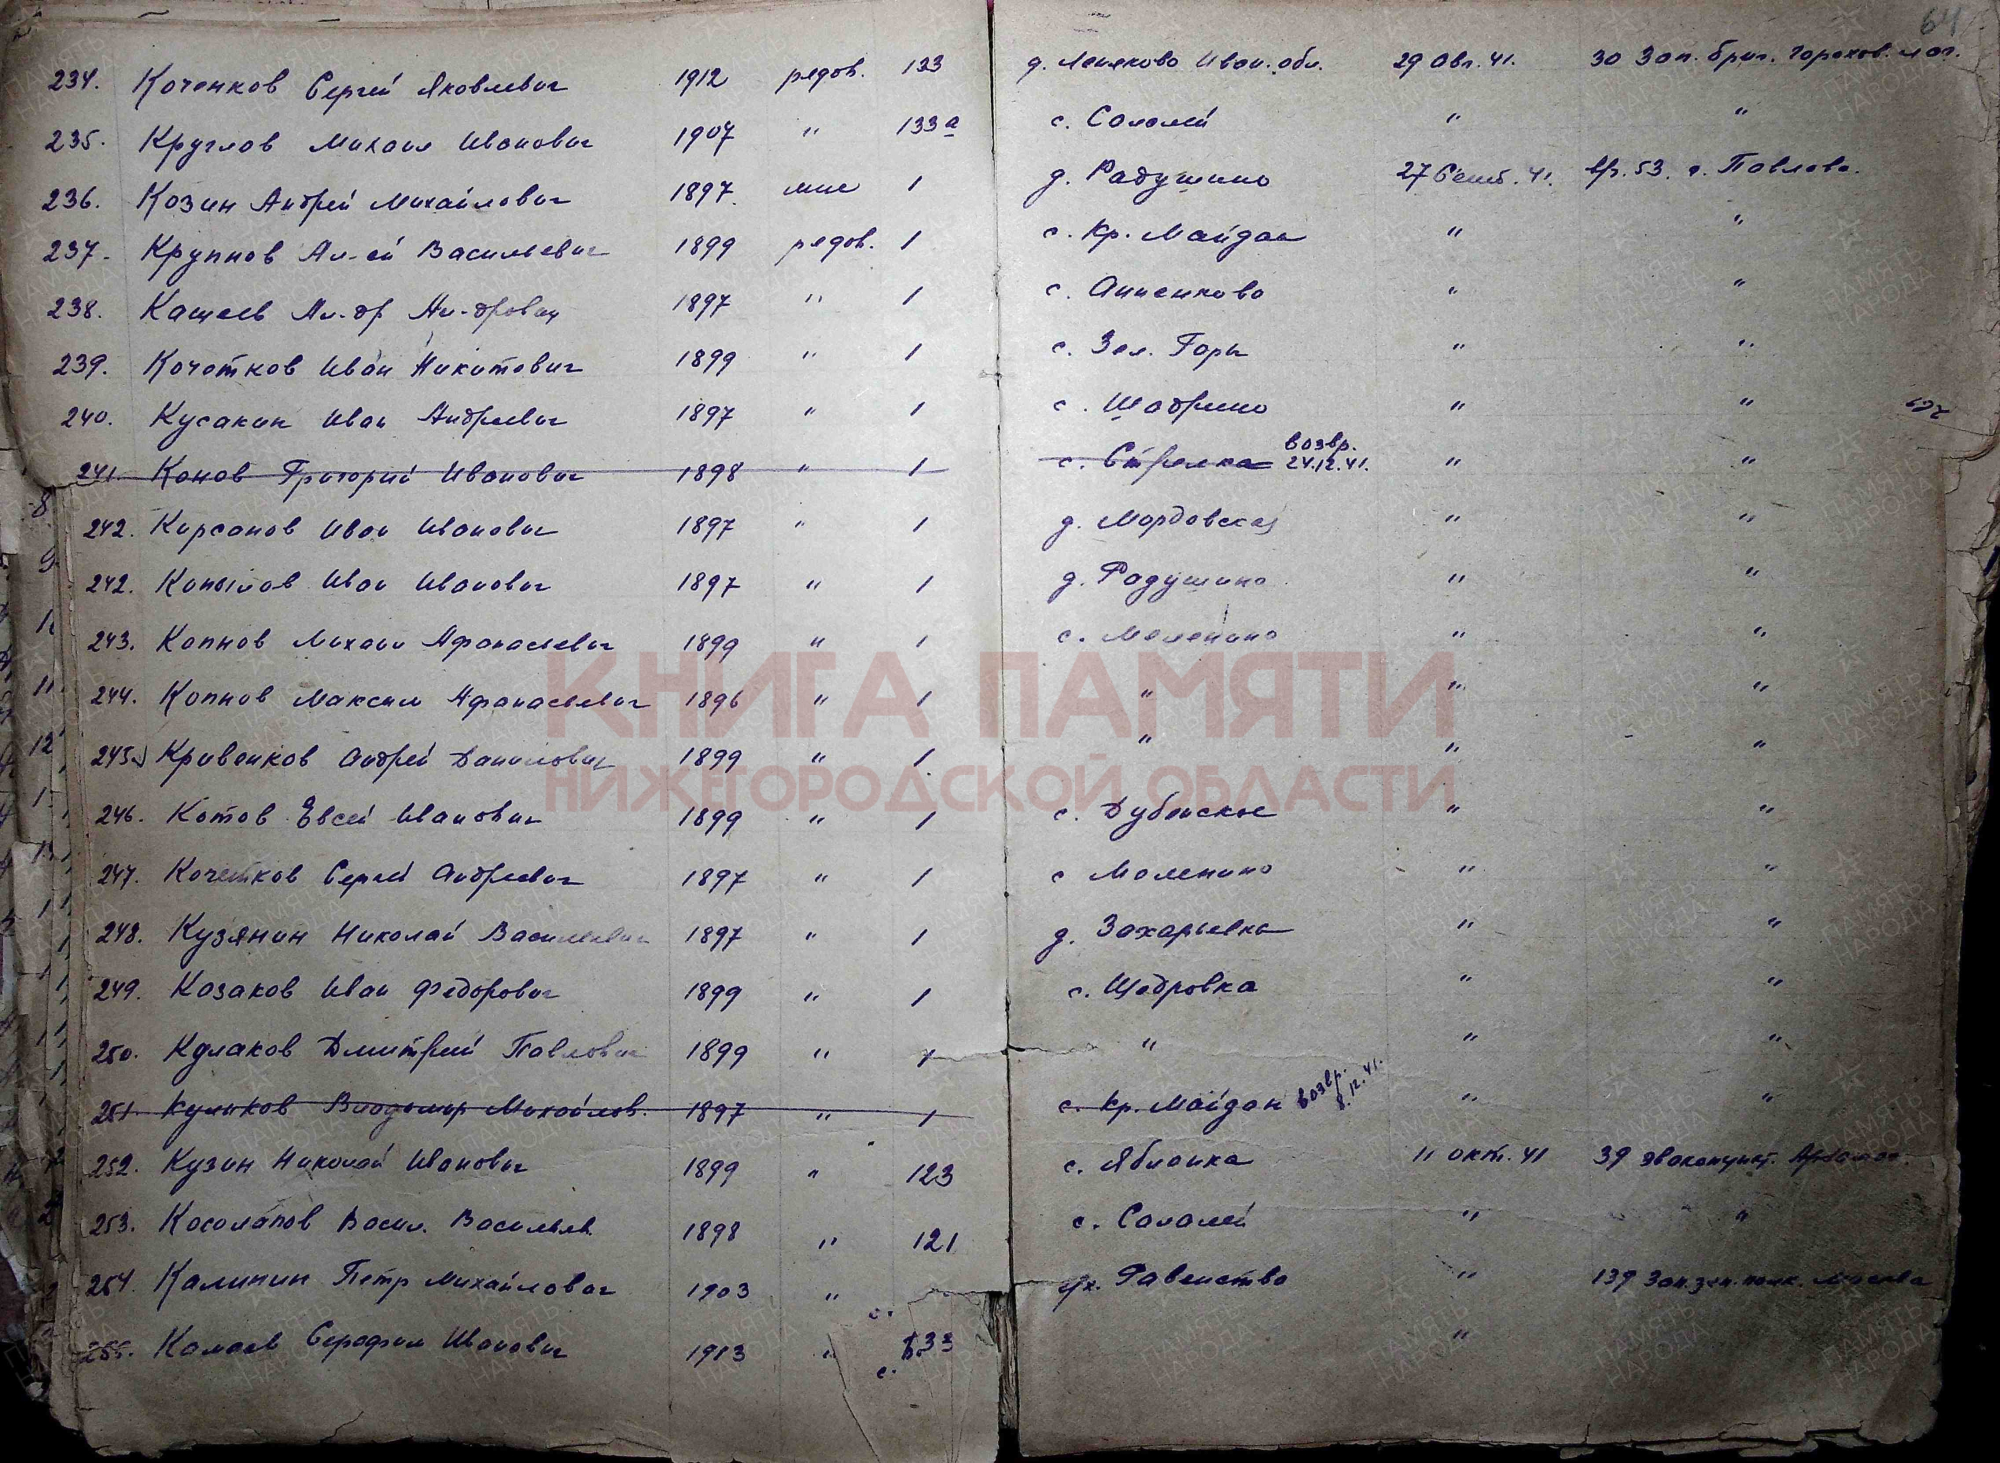 64
234. Коченков Сергей Яковлевич 1912 рядов. 133 д. Ивan. обл. 29 Авг. 41. 30 Зап. бриг. Горохов. лаг.
235. Круглов Михаил Иванович 1907 " 133а с. Саломей " "
236. Козин Андрей Михайлович 1897 1 д. Радушино 27 Сент. 41. г. Павлово.
237. Крупнов Ал-ей Васильевич 1899 рядов. 1 с. Кр. Майдан " "
238. Кащеев Ал-др Ал-дрович 1897 " 1 с. Анненково " "
239. Кочетков Иван Никитович 1899 " 1 с. Зел. Горы " "
240. Кусакин Иван Андреевич 1897 " 1 с. Шадрино " "
241. Конов Григорий Иванович 1898 " 1 с. Стрелка возвр. 24.12.41. " "
242. Кирсанов Иван Иванович 1897 " 1 д. Мордовская " "
242. Копылов Иван Иванович 1897 " 1 д. Радушино " "
243. Копнов Михаил Афанасьевич 1899 " 1 с. " "
244. Копнов Максим Афанасьевич 1896 " 1 " " "
245. Кривенков Андрей Данилович 1899 " 1 " " "
246. Котов Евсей Иванович 1899 " 1 с. Дубенское " "
247. Кочетков Сергей Андреевич 1897 " 1 с " "
248. Кузянин Николай Васильевич 1897 " 1 д. Захарьевка " "
249. Козаков Иван Федорович 1899 " 1 с. Щедровка " "
250. Кулаков Дмитрий Павлович 1899 " 1 " " "
251. Куликов Владимир Михайлов. 1897 " 1 с. Кр. Майдан возвр. 8.12.41. " "
252. Кузин Николай Иванович 1899 " 123 с. Яблонка 11 окт. 41 39 эвакопункт.
253. Косолапов Васил. Васильев. 1898 " 121 с. Саломей " "
254. Калинин Петр Михайлович 1903 " Равенство " 139 Зап. зен. полк. Москва
255. Камаев Серафим Иванович 1913 " 133 "
КНИГА ПАМЯТИ
НИЖЕГОРОДСКОЙ ОБЛАСТИ